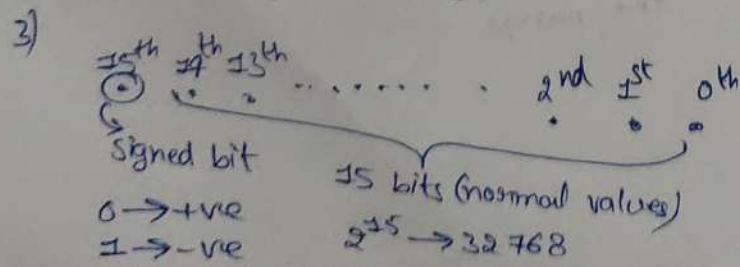 3)
15th 14th 13th ........ . 2nd 1st 0th
Signed bit
15 bits (normal values)
0→+ve
1→-ve
2^15→32768